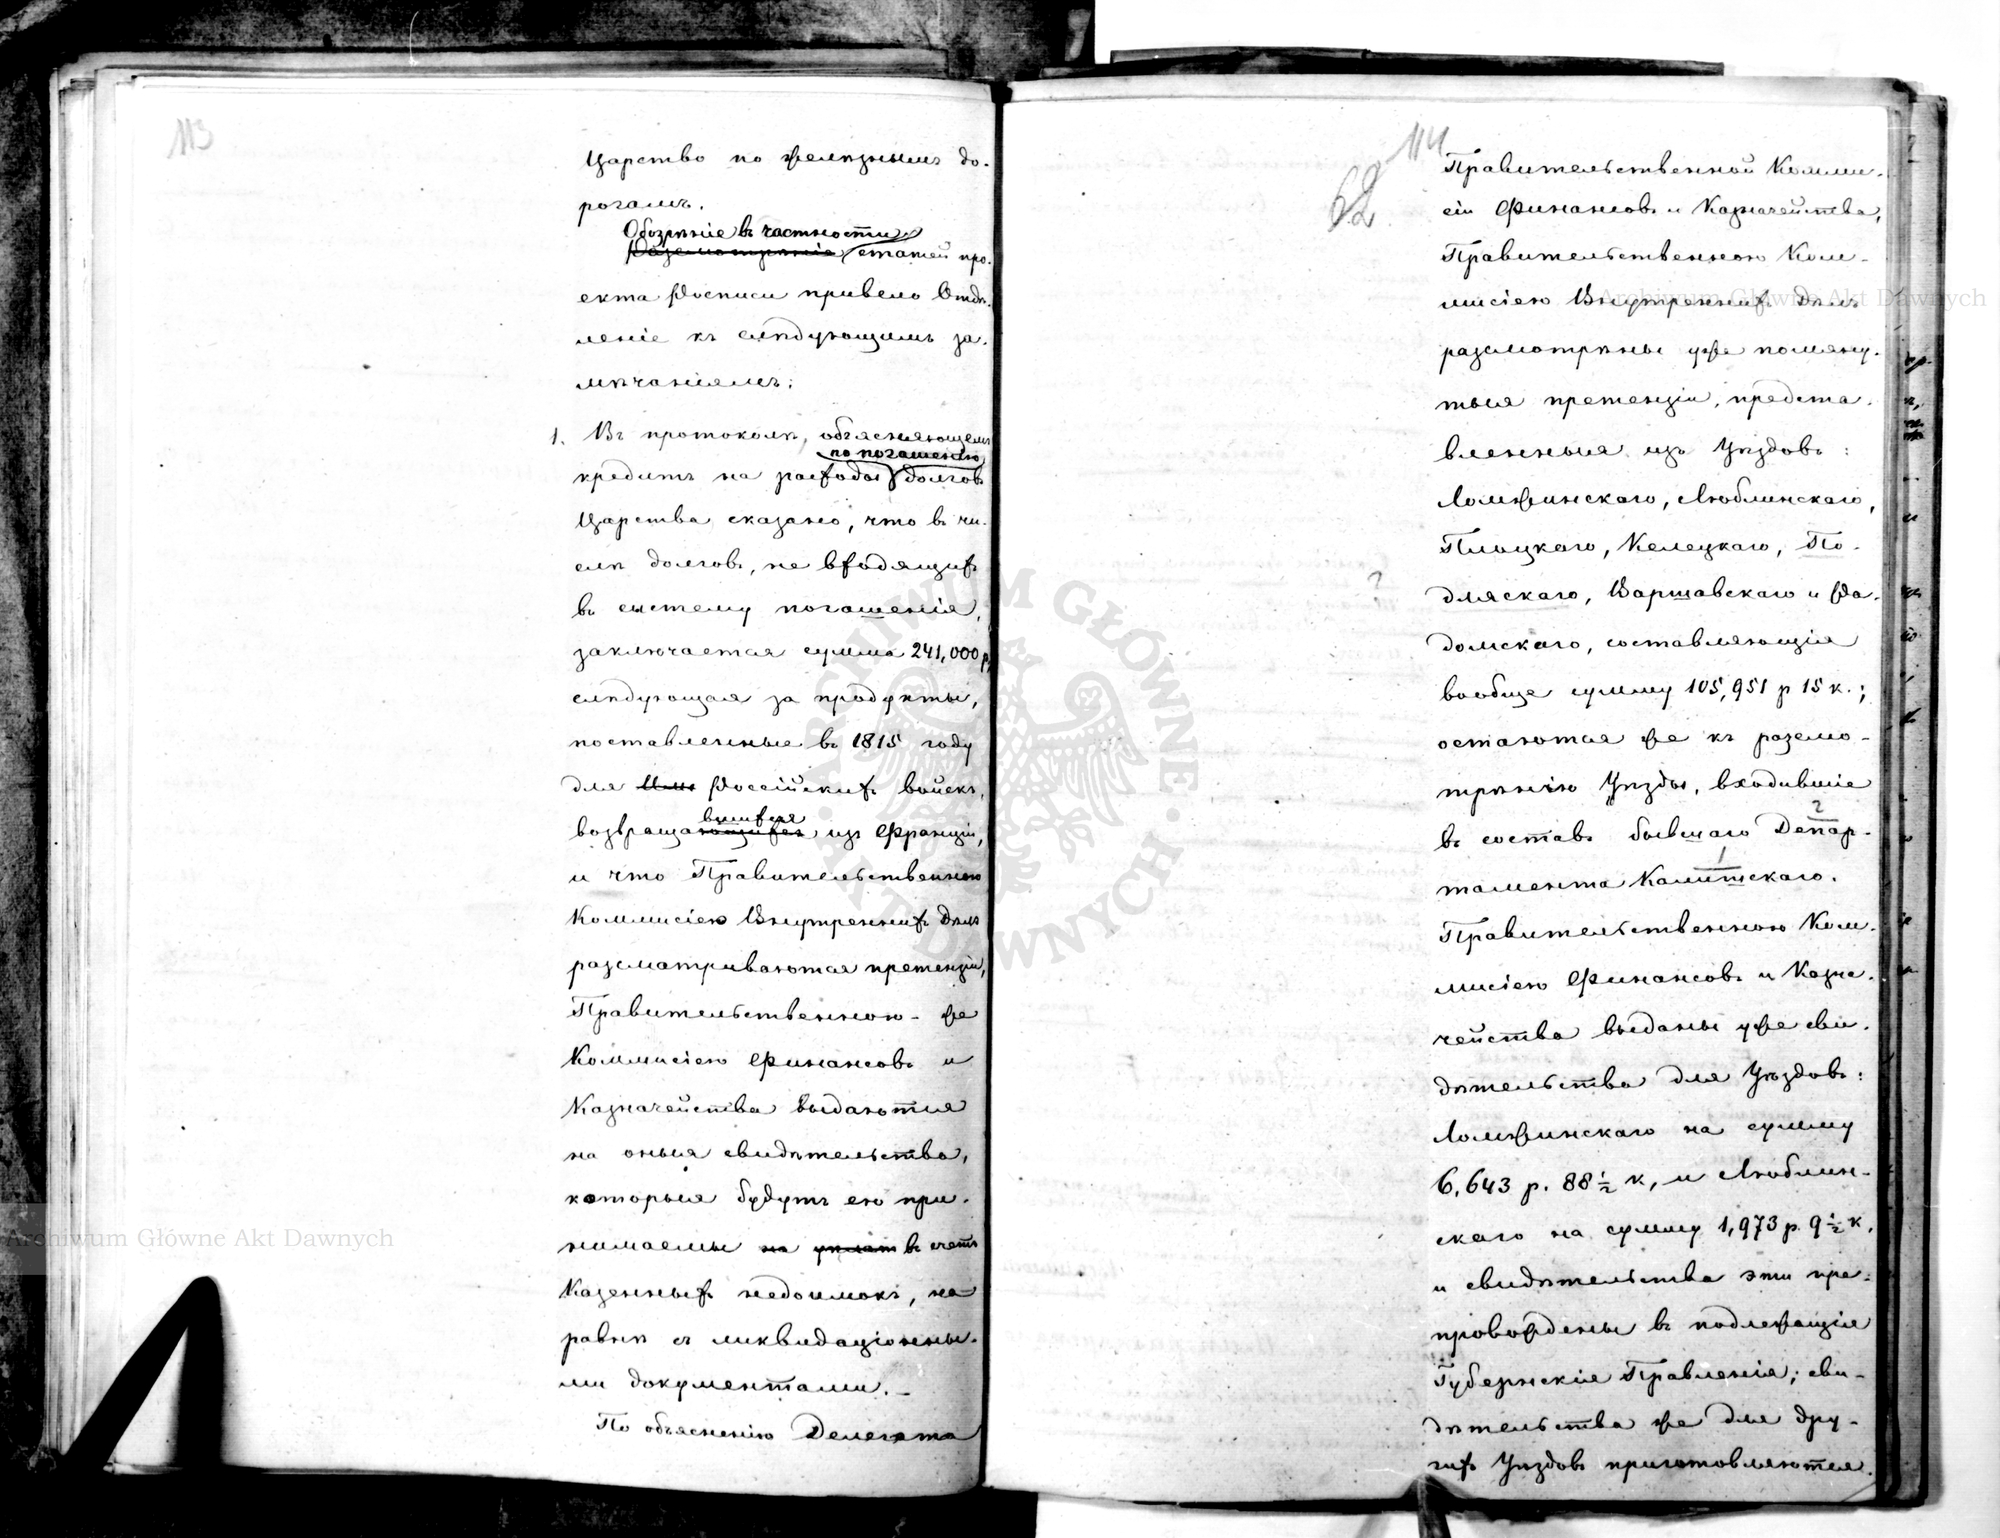 113
Царство по желѣзнымъ до-
рогамъ.
Обозрѣніе въ частности
Разсмотрѣніе статей про-
екта Росписи привело Отдѣ-
леніе къ слѣдующимъ за-
мѣчаніямъ:
1. Въ протоколѣ, объясняющемъ
по погашенію
кредитъ на расходы долговъ
Царства сказано, что въ чи-
слѣ долговъ, не входящихъ
въ систему погашенія,
заключается сумма 241,000 р.
слѣдующая за продукты,
поставленные въ 1815 году
для Россійскихъ войскъ,
вшихся
возвращающихся изъ Франціи,
и что Правительственною
Коммисіею Внутреннихъ Дѣлъ
разсматриваются претензіи,
Правительственною же
Коммисіею Финансовъ и
Казначейства выдаются
на оныя свидѣтельства,
которыя будутъ ею при-
нимаемы на уплату въ счетъ
Казенныхъ недоимокъ, на-
равнѣ съ ликвидаціонны-
ми документами. –
По объясненію Делегата
114
62
Правительственной Комми-
сіи Финансовъ и Казначейства,
Правительственною Ком-
мисіею Внутреннихъ Дѣлъ
разсмотрѣны уже помяну-
тыя претензіи, предста-
вленныя изъ Уѣздовъ:
Ломжинскаго, Люблинскаго,
Плоцкаго, Келецкаго, По-
?
дляскаго, Варшавскаго и Ра-
домскаго, составляющія
вообще сумму 105,951 р 15 к.;
остаются же къ разсмо-
трѣнію Уѣзды, входившіе
?
въ составъ бывшаго Депар-
тамента Калишскаго.
Правительственною Ком-
мисіею Финансовъ и Казна-
чейства выданы уже сви-
дѣтельства для Уѣздовъ:
Ломжинскаго на сумму
6,643 р. 88 ½ к, и Люблин-
скаго на сумму 1,973 р. 9 ½ к.
и свидѣтельства эти пре-
провождены въ подлежащія
Губернскія Правленія; сви-
дѣтельства же для дру-
гихъ Уѣздовъ приготовляются.
Archiwum Główne Akt Dawnych
Archiwum Główne Akt Dawnych
ARCHIWUM GŁÓWNE
AKT DAWNYCH